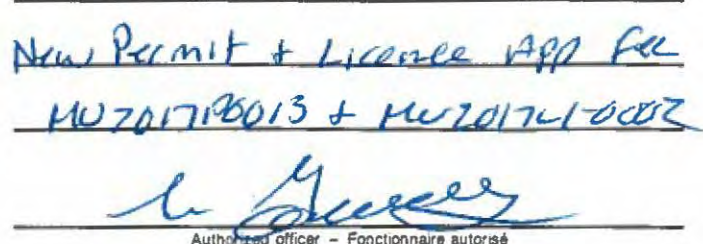 New Permit & Licence App Fee
MV2017P0013 & MV2017L1-0002
Authorized officer – Fonctionnaire autorisé